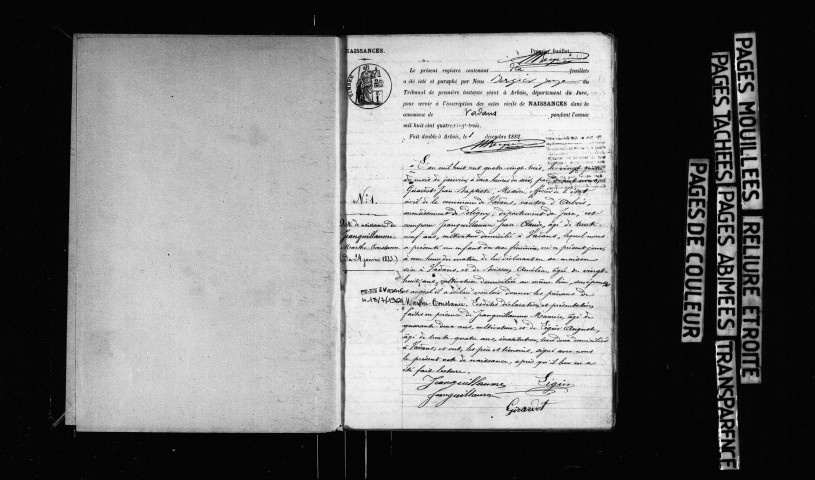 NAISSANCES.
Premier feuillet.
Le présent registre contenant dix feuillets
a été coté et paraphé par Nous Bergier juge du
Tribunal de première instance séant à Arbois, département du Jura,
pour servir à l'inscription des actes civils de NAISSANCES dans la
commune de Vadans pendant l'année
mil huit cent quatre-vingt-trois.
Fait double à Arbois, le décembre 1882
L'an mil huit cent quatre-vingt trois, le vingt quatre
du mois de janvier, à deux heures du soir, par devant nous
Girardot Jean Baptiste Maire, officier de l'état
civil de la commune de Vadans, canton d'Arbois,
arrondissement de Poligny, département du Jura, est
comparu Jeanguillaume Jean Claude, âgé de trente
neuf ans, cultivateur domicilié à Vadans, lequel nous
a présenté un enfant du sexe féminin, né ce présent jour,
à une heure du matin, de lui déclarant en sa maison
sise à Vadans, et de Amélia, âgée de vingt
huit ans, cultivatrice domiciliée au même lieu, son épouse
et auquel il a déclaré vouloir donner les prénoms de
Marthe-Constance. Lesdites déclaration et présentation
faites en présence de Jeanguillaume Maurice, âgé de
quarante deux ans, cultivateur, et de Ligier August,
âgé de trente quatre ans, instituteur, tous deux domiciliés
à Vadans; et ont, les père et témoins, signé avec nous
le présent acte de naissance, après qu'il leur en a
été fait lecture.
Jeanguillaume Ligier
Jeanguillaume
Girardot
N° 1.
Acte de naissance de
Jeanguillaume
Marthe-Constance
(Du 24 janvier 1883.)
PAGES MOUILLEES RELIURE ETROITE
PAGES TACHÉES PAGES ABIMEES TRANSPARENCE
PAGES DE COULEUR